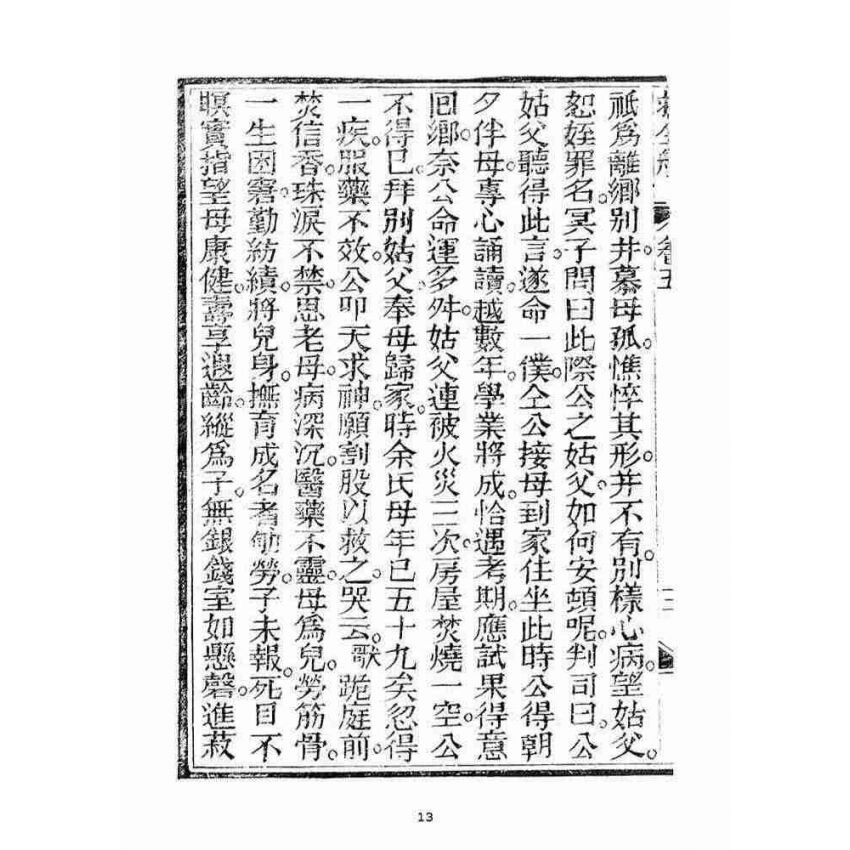 卷五
祇爲離鄉別井。慕母孤。憔悴其形。并不有。別樣心病。望姑父。
恕姪罪名。冥子問曰此際公之姑父。如何安頓呢。判司曰。公
姑父聽得此言。遂命一僕仝公接母到家住坐此時公得朝
夕伴母。專心誦讀。越數年。學業將成。恰遇考期。應試果得意
囘鄉。奈公命運多舛。姑父連被火災三次。房屋焚燒一空。公
不得已。拜別姑父。奉母歸家。時余氏母年已五十九矣。忽得
一疾。服藥不效。公叩天求神。願割股以救之。哭云。歌 跪庭前。
焚信香。珠淚不禁。思老母。病深沉。醫藥不靈。母爲兒。勞筋骨。
一生困窘。勤紡績。將兒身。撫育成名。者劬勞。子未報。死目不
瞑。實指望母康健。壽享遐齡。縱爲子。無銀錢室如懸磬。進菽
13